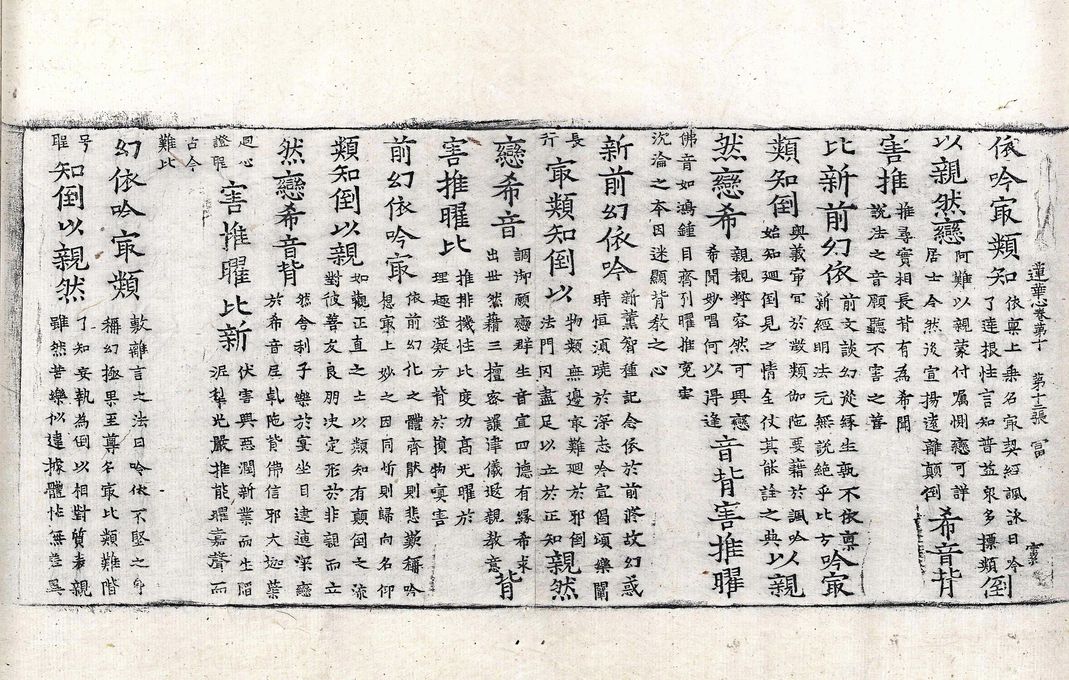 蓮華心卷第十　第十三張　冨
依吟㝡類知
依稟上乗名㝡契經諷詠曰吟
了達根性言知普益衆多摽類
倒
以親然戀
阿難以親蒙付囑惻戀可詳
居士令然後宣揚遠離顛倒
希音背
害推
推尋實相長背有為希聞
說法之音願聽不害之善
比新前幻依
前文談幻從緣生孰不依稟
新經明法元無說絶乎比方
吟㝡
類知倒
奧義甯同於類伽陁要藉於諷吟
始知廻倒見之情全仗其能詮之典
以親
然戀希
親觀粹容然可興戀
希聞妙唱何以得逢
音背害推曜
佛音如鴻鍾目齊列曜推寃害
沉淪之本因迷顯背教之心
新前幻依吟
新薰智種記念依於前蔣故幻惑
時恒須曉於深志吟宣偈頌樂闡
長
行
㝡類知倒以
物類無邊㝡難廻於邪倒
法門冈盡足以立於正知
親然
戀希音
調御願戀群生音宣四德有緣希求
出世然藉三檀容護違儀遐親教意
背
害推曜比
推排機性比度功高光曜於
理趣澄凝方背於損物寘害
前幻依吟㝡
依前幻化之體齊猒則悲歎稱吟
想㝡上妙之因同忻則歸向名仰
類知倒以親
如觀正直之士以類知有顛倒之流
對彼善友良朋決定形於非親而立
然戀希音背
然舍利子樂於宴坐目連深戀
於希音居陁背佛信邪大迦葉
廻心
證聖
害推曜比新
伏害興惡潤新業而生
泥犁光嚴推能曜嘉聲而
古今
難比
幻依吟㝡類
敷離言之法曰吟依不堅之命
稱幻極果至尊名㝡比類難階
号
聖
知倒以親然
了知妄執為倒以相對質表親
雖然苦樂似違據體性無差異